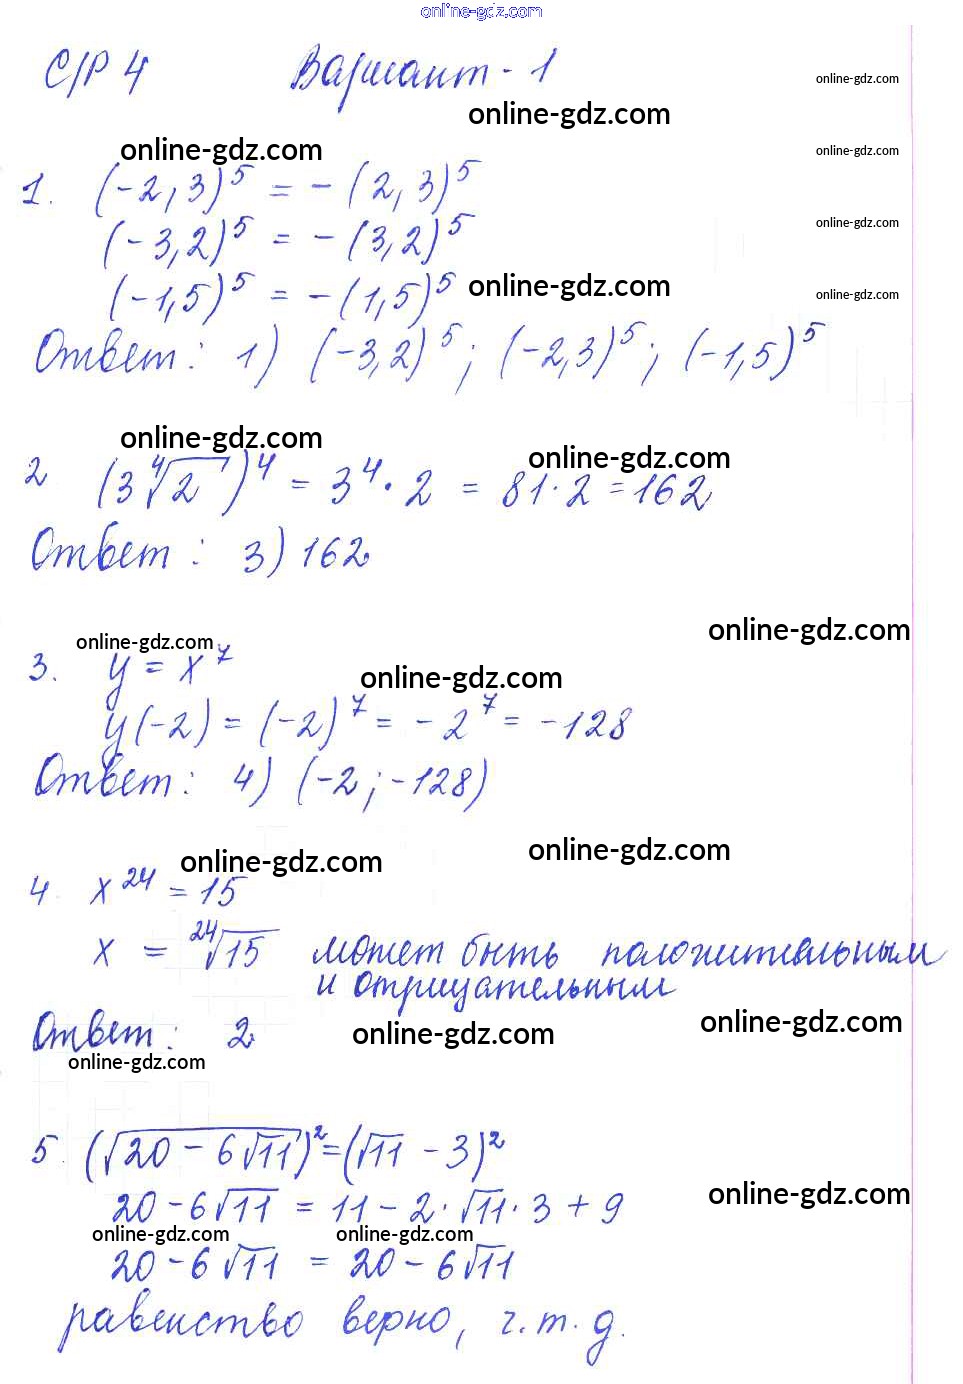 online-gdz.com
С/Р 4 Вариант - 1
online-gdz.com
online-gdz.com
online-gdz.com
online-gdz.com
1. (-2,3)⁵ = -(2,3)⁵
(-3,2)⁵ = -(3,2)⁵
online-gdz.com
(-1,5)⁵ = -(1,5)⁵
online-gdz.com
online-gdz.com
Ответ: 1) (-3,2)⁵; (-2,3)⁵; (-1,5)⁵
online-gdz.com
online-gdz.com
2 (3⁴√2)⁴ = 3⁴·2 = 81·2 = 162
Ответ: 3) 162
online-gdz.com
online-gdz.com
3. y = x⁷
online-gdz.com
y(-2) = (-2)⁷ = -2⁷ = -128
Ответ: 4) (-2; -128)
online-gdz.com
online-gdz.com
4. x²⁴ = 15
x = ²⁴√15 может быть положительным
и отрицательным
Ответ: 2
online-gdz.com
online-gdz.com
online-gdz.com
5. (√(20 - 6√11))² = (√11 - 3)²
online-gdz.com
20 - 6√11 = 11 - 2·√11·3 + 9
online-gdz.com
online-gdz.com
20 - 6√11 = 20 - 6√11
равенство верно, ч.т.д.